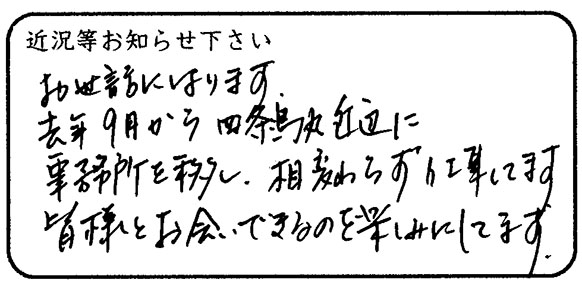 近況等お知らせ下さい
お世話になります。
去年9月から四条烏丸近辺に
事務所を移し、相変わらず仕事してます
皆様とお会いできるのを楽しみにしてます。